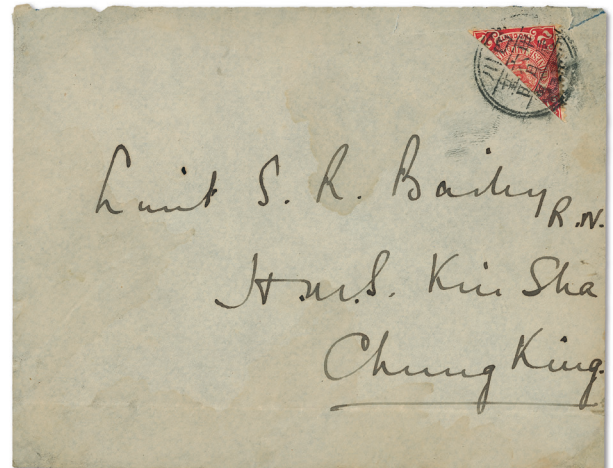 Lieut S. R. Bailey
R.N.
H.M.S. Kin Sha
Chung King.